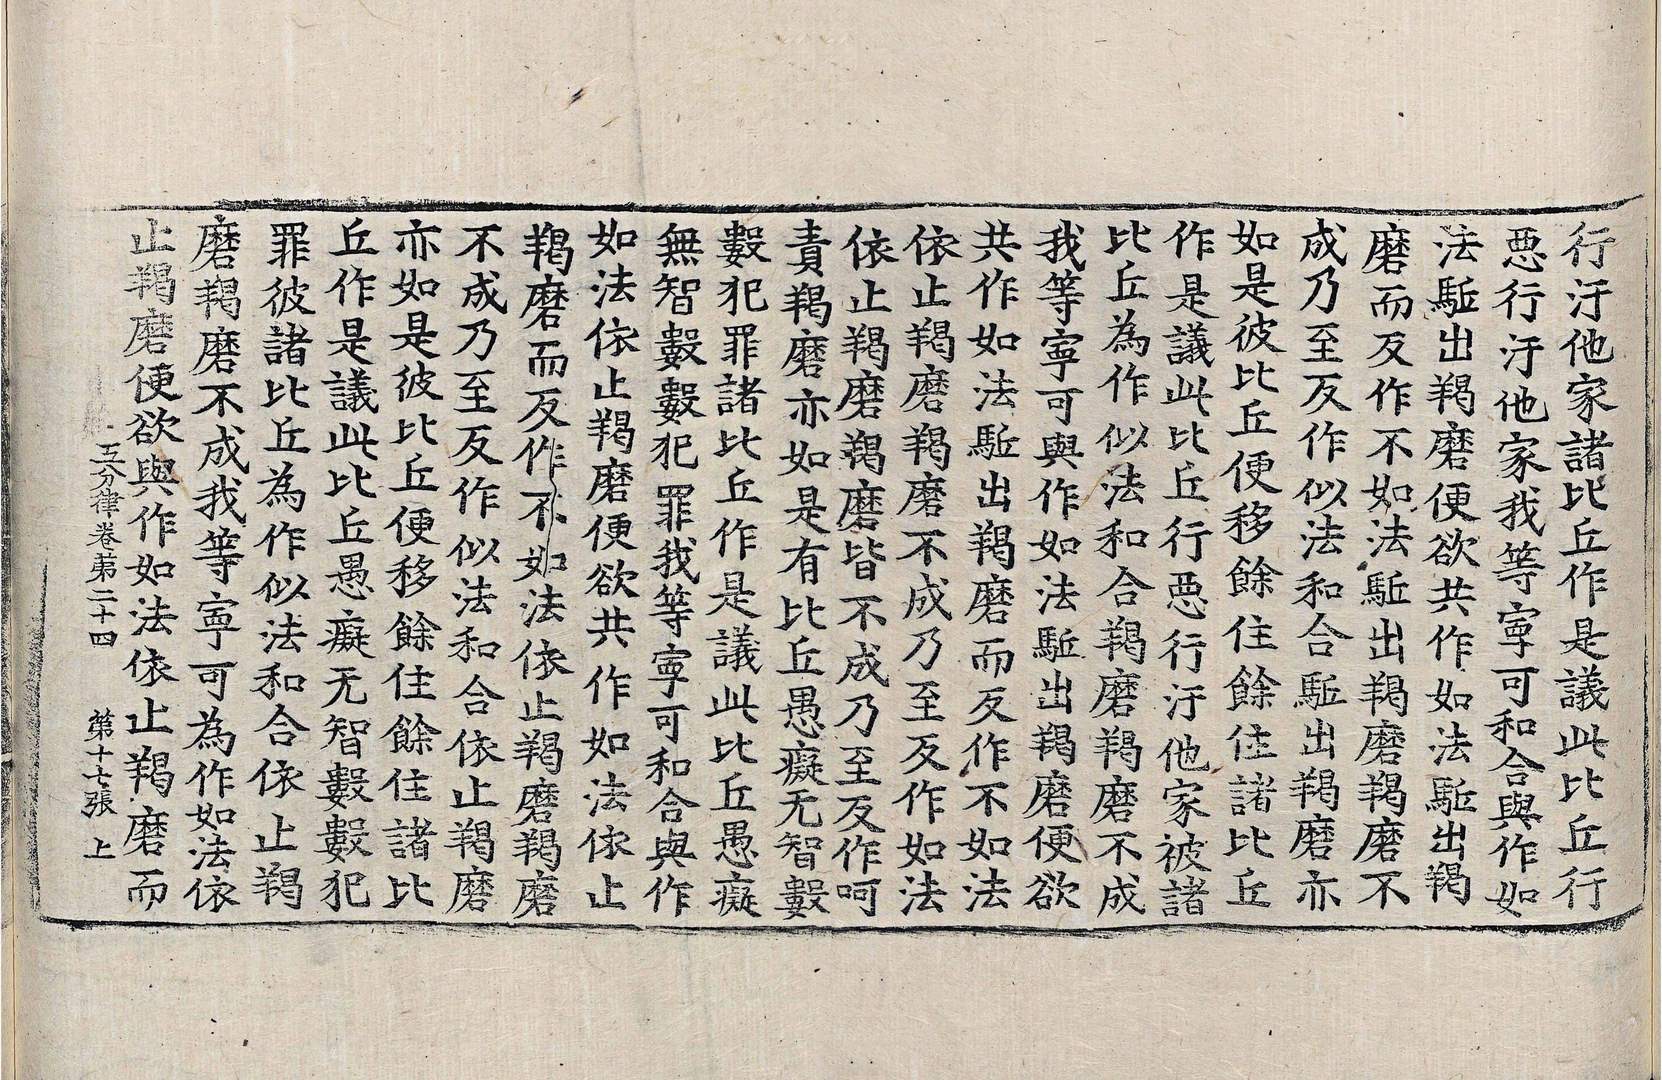 行汙他家諸比丘作是議此比丘行
惡行汙他家我等寧可和合與作如
法駈出羯磨便欲共作如法駈出羯
磨而反作不如法駈出羯磨羯磨不
成乃至反作似法和合駈出羯磨亦
如是彼比丘便移餘住餘住諸比丘
作是議此比丘行惡行汙他家被諸
比丘為作似法和合羯磨羯磨不成
我等寧可與作如法駈出羯磨便欲
共作如法駈出羯磨而反作不如法
依止羯磨羯磨不成乃至反作如法
依止羯磨羯磨皆不成乃至反作呵
責羯磨亦如是有比丘愚癡无智數
數犯罪諸比丘作是議此比丘愚癡
無智數數犯罪我等寧可和合與作
如法依止羯磨便欲共作如法依止
羯磨而反作不如法依止羯磨羯磨
不成乃至反作似法和合依止羯磨
亦如是彼比丘便移餘住餘住諸比
丘作是議此比丘愚癡无智數數犯
罪彼諸比丘為作似法和合依止羯
磨羯磨不成我等寧可為作如法依
止羯磨便欲與作如法依止羯磨而
五分律卷第二十四 第十七張 上